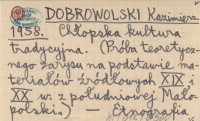 DOBROWOLSKI Kazimierz
1958. Chłopska kultura
tradycyjna. (Próba teoretycz.
zarysu na podstawie ma-
teriałów źródłowych XIX i
XX w. z południowej Mało-
polski.) — Etnografia